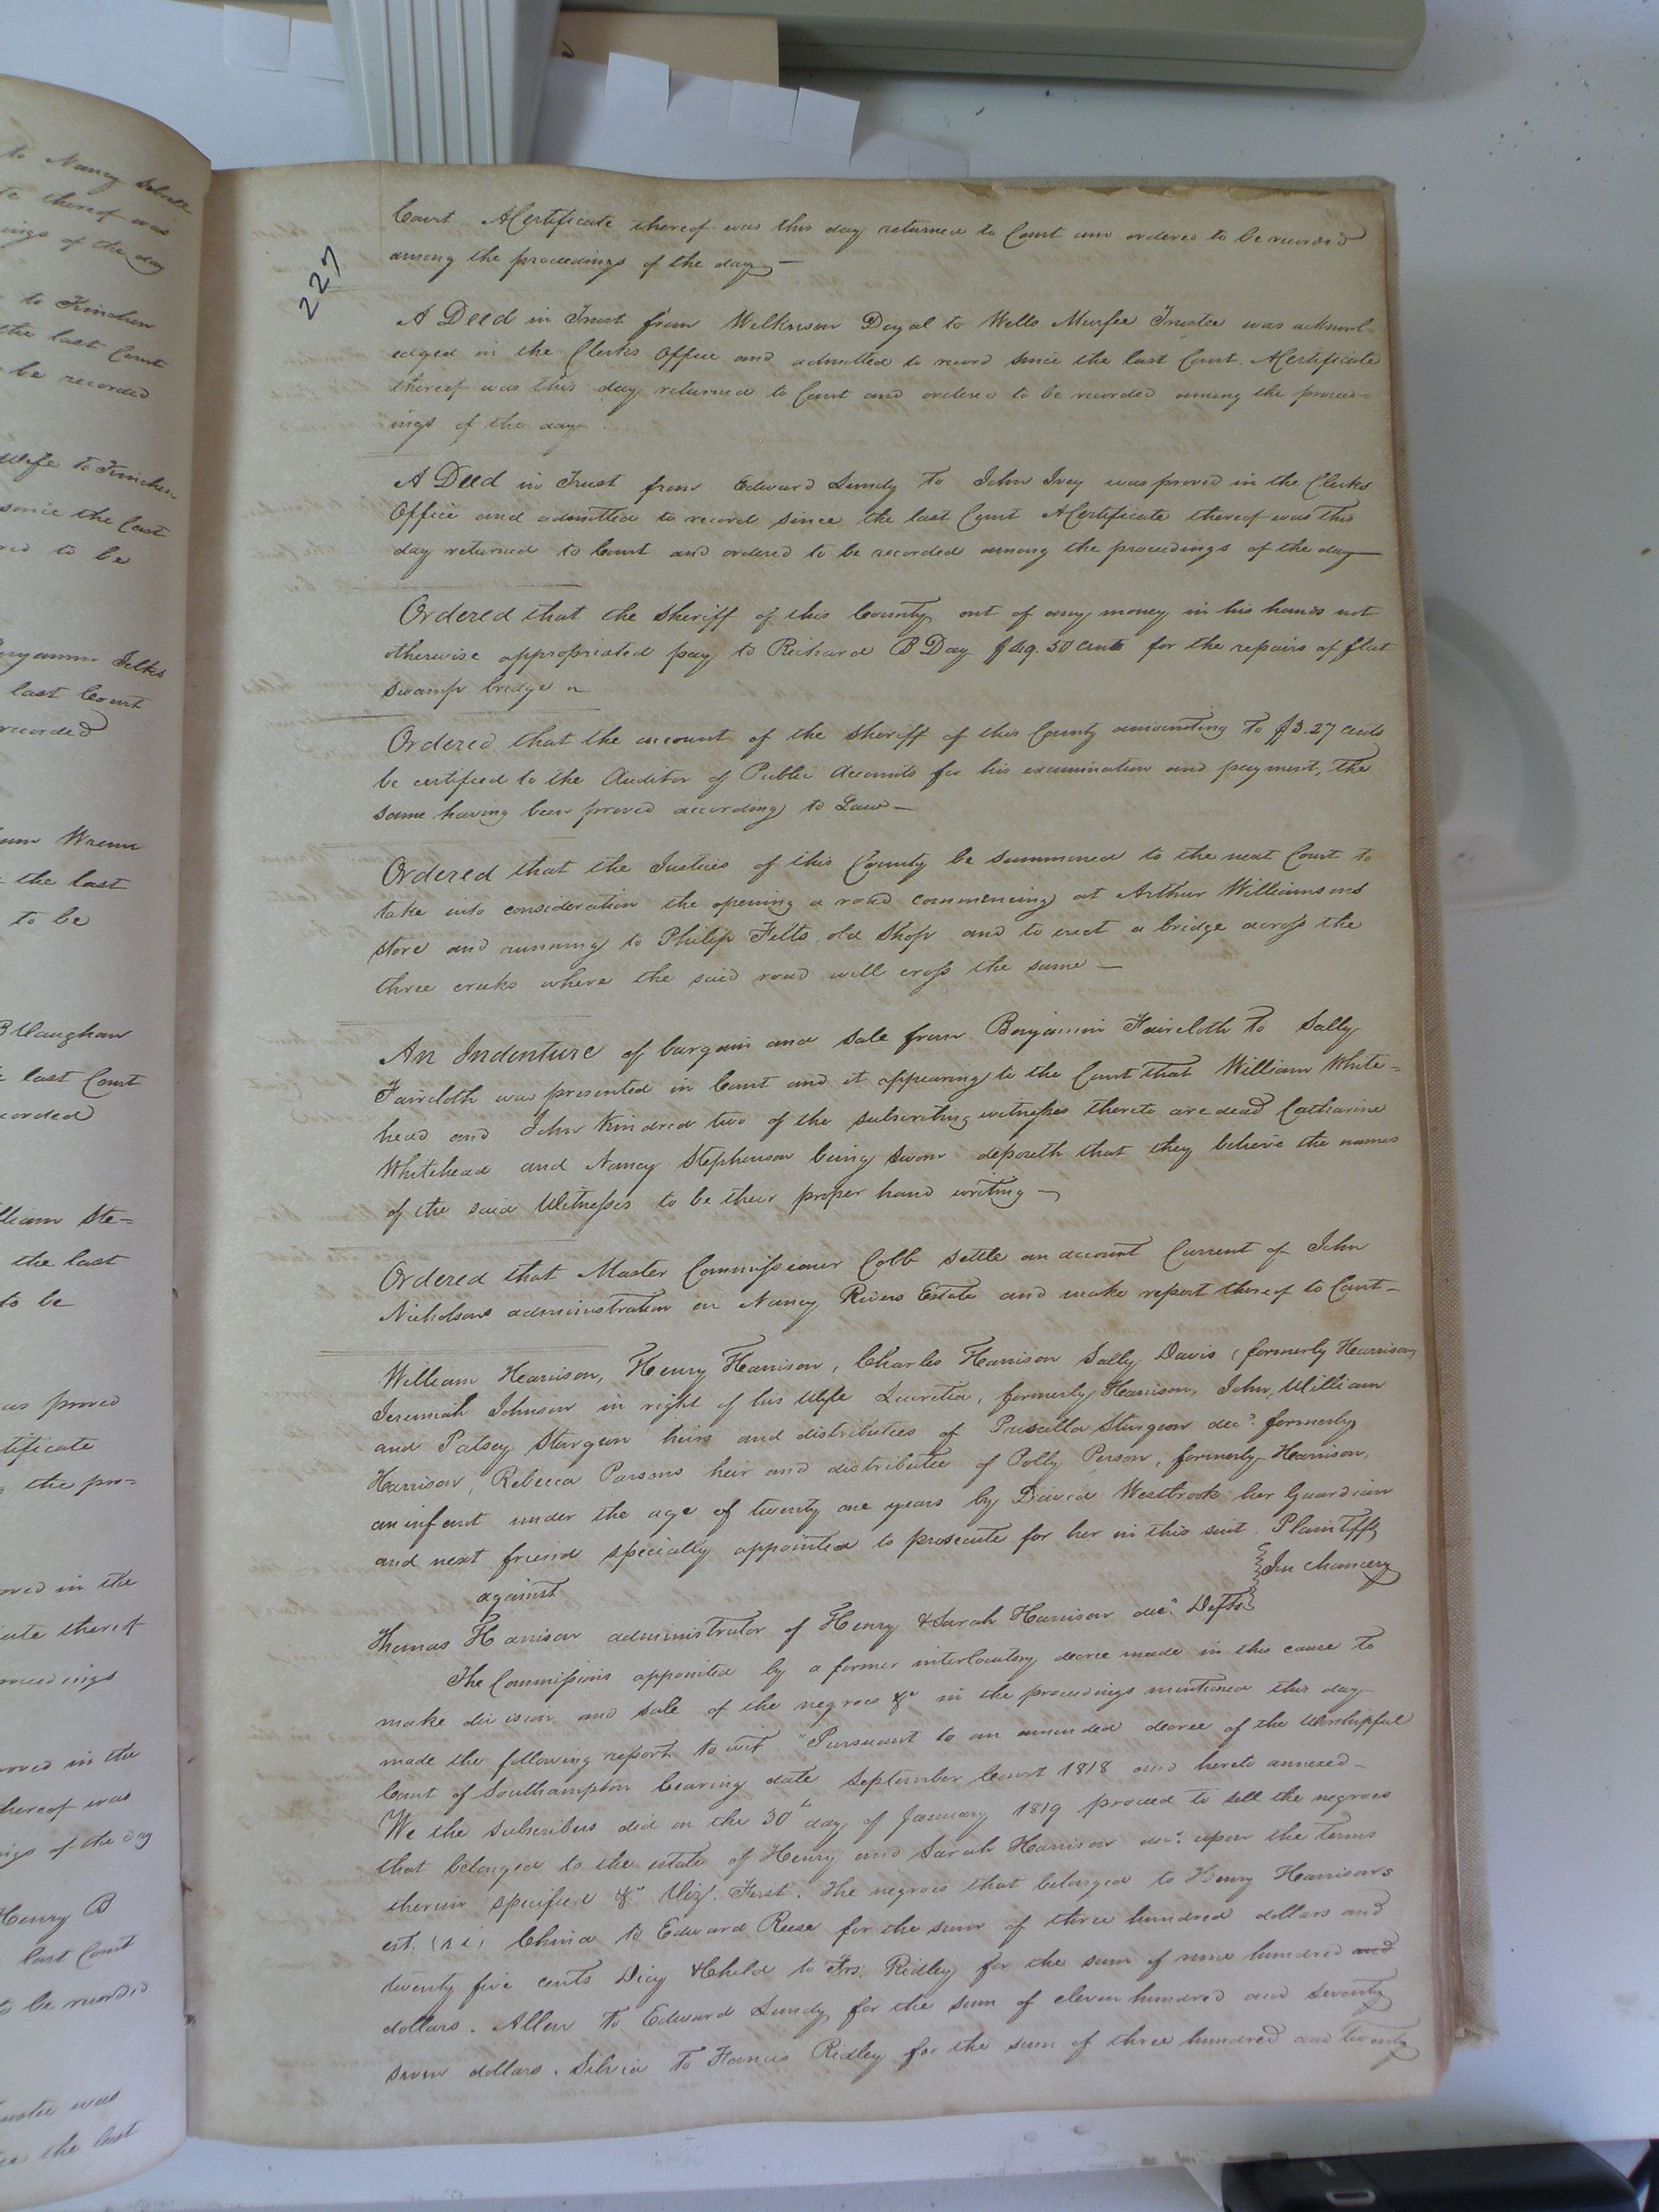 227
Court. A Certificate thereof was this day returned to Court and ordered to be recorded
among the proceedings of the day —
A Deed in Trust from Wilkinson Doyal to Wells Murfee Trustee was acknowl-
edged in the Clerks Office and admitted to record since the last Court. A Certificate
thereof was this day returned to Court and ordered to be recorded among the proceed-
ings of the day
A Deed in Trust from Edward Lundy to John Ivey was proved in the Clerks
Office and admitted to record since the last Court A Certificate thereof was this
day returned to Court and ordered to be recorded among the proceedings of the day —
Ordered that the Sheriff of this County out of any money in his hands not
otherwise appropriated pay to Richard B Day 50 cents for the repairs of flat
swamp bridge
Ordered that the account of the Sheriff of this County amounting to $3.27 cents
be certified to the Auditor of Public Accounts for his examination and payment, the
same having been proved according to Law —
Ordered that the Justices of this County be summoned to the next Court to
take into consideration the opening a road commencing at Arthur Williamsons
store and running to Philip Felts old Shop and to erect a bridge across the
three creeks where the said road will cross the same —
An Indenture of bargain and sale from Benjamin Faircloth to Sally
Faircloth was presented in Court and it appearing to the Court that William White-
head and John Kindred two of the subscribing witnesses thereto are dead Catharine
Whitehead and Nancy Stephenson being sworn deposeth that they believe the names
of the said Witnesses to be their proper hand writing —
Ordered that Master Commissioner Cobb settle an account Current of John
Nicholsons administration on Nancy Rivers Estate and make report thereof to Court —
William Harrison, Henry Harrison, Charles Harrison Sally Davis (formerly Harrison)
Jeremiah Johnson in right of his Wife Lucretia, formerly Harrison, John, William
and Patsey Sturgeon heirs and distributees of Priscilla Sturgeon decd. formerly
Harrison, Rebecca Parsons heir and distributee of Polly Person, formerly Harrison,
an infant under the age of twenty one years by David Westbrook her Guardian
and next friend specially appointed to prosecute for her in this suit. Plaintiffs
against } In Chancery
Thomas Harrison administrator of Henry & Sarah Harrison decd. Defts
The Commissions appointed by a former interlocutory decree made in this cause to
make division and sale of the negroes &c in the proceedings mentioned this day
made the following report to wit. "Pursuant to an amended decree of the Worshipful
Court of Southampton bearing date September Court 1818 and hereto annexed —
We the subscribers did on the 30th day of January 1819 proceed to sell the negroes
that belonged to the estate of Henry and Sarah Harrison decd. upon the terms
therein specified &c Viz. First. The negroes that belonged to Henry Harrisons
est. China to Edward Reese for the sum of three hundred dollars and
twenty five cents Dicy & Child to Frs. Ridley for the sum of nine hundred and
dollars. Allen to Edward Lundy for the sum of eleven hundred and seventy
seven dollars. Silvia to Francis Ridley for the sum of three hundred and twenty
to Nancy
thereof was
ings of the day
to Kinchen
the last Court
be recorded
Wife to Kinchen
since the last
to be
last Court
recorded
Wrenn
the last
to be
B Vaughan
last Court
lliam Ste=
the last
to be
as proved
tificate
the pro=
in the
ate thereof
in the
thereof was
of the day
Henry B
last Court
to be recorded
was
the last